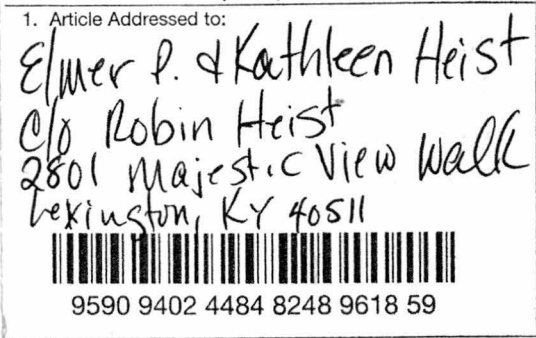 1. Article Addressed to:
Elmer P. & Kathleen Heist
c/o Robin Heist
2801 Majestic View Walk
Lexington, KY 40511
9590 9402 4484 8248 9618 59